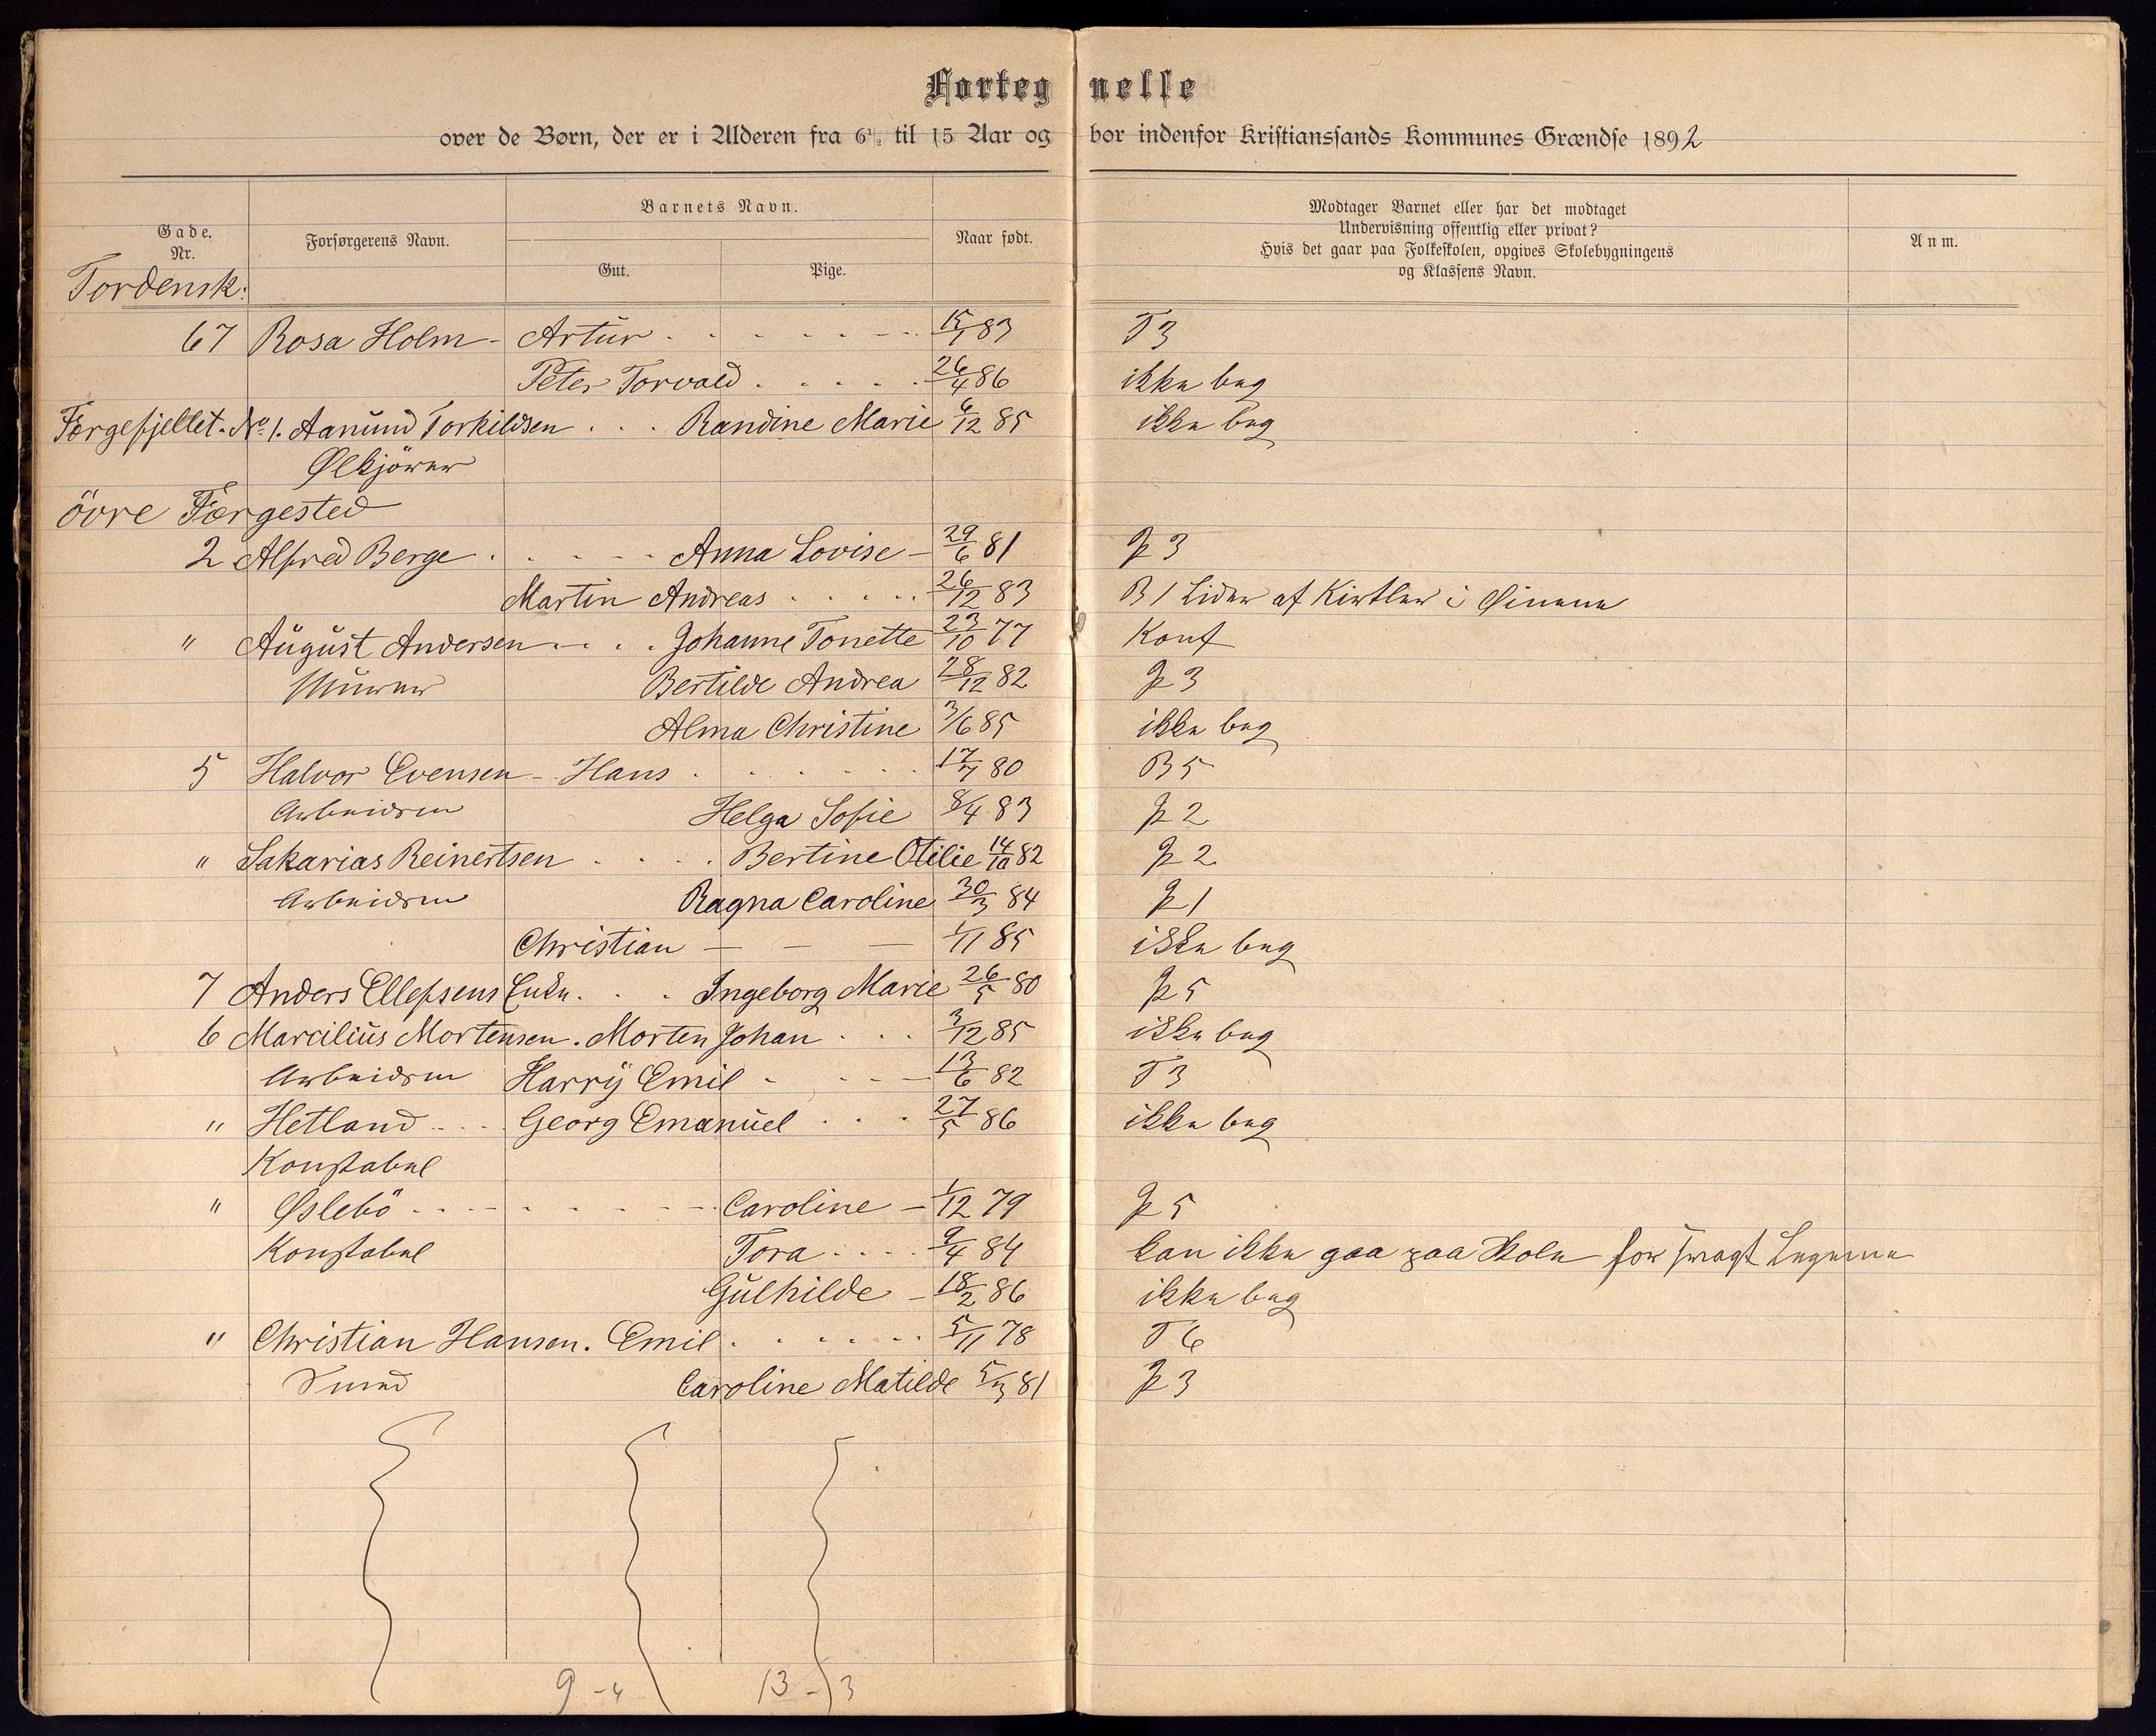 Fortegnelse
over de Børn, der er i Alderen fra 6½ til 15 Aar og bor indenfor Kristianssands Kommunes Grændse 1892
Gade. Nr. Forsørgerens Navn. Barnets Navn. Gut. Pige. Naar født. Modtager Barnet eller har det modtaget Undervisning offentlig eller privat? Hvis det gaar paa Folkeskolen, opgives Skolebygningens og Klassens Navn. Anm.
Tordensk:
67 Rosa Holm - Artur 15/1 83 T 3
Peter Torvald 26/4 86 ikke beg
Færgefjellet. No. 1. Aanund Torkildsen Randine Marie 6/12 85 ikke beg
Ølkjörer
övre Færgested
2 Alfred Berge Anna Lovise 29/6 81 P 3
Martin Andreas 26/12 83 B 1 Lider af Kirtler i Øinene
" August Andersen Johanne Tonette 23/10 77 Konf
Murer Bertilde Andrea 28/12 82 P 3
Alma Christine 3/6 85 ikke beg
5 Halvor Evensen - Hans 17/7 80 B 5
Arbeidsm Helga Sofie 8/4 83 P 2
" Sakarias Reinertsen Bertine Otilie 14/10 82 P 2
Arbeidsm Ragna Caroline 30/3 84 P 1
Christian 1/11 85 ikke beg
7 Anders Ellefsens Enke Ingeborg Marie 26/5 80 P 5
6 Marcilius Mortensen. Morten Johan 3/12 85 ikke beg
Arbeidsm Harry Emil 13/6 82 T 3
" Hetland Georg Emanuel 27/5 86 ikke beg
Konstabel
" Øslebö Caroline 1/12 79 P 5
Konstabel Tora 9/4 84 kan ikke gaa paa Skole for svagt Legeme
Gulhilde 18/2 86 ikke beg
" Christian Hansen. Emil 5/11 78 T 6
Smed Caroline Matilde 5/3 81 P 3
9 - 4 13 - 3